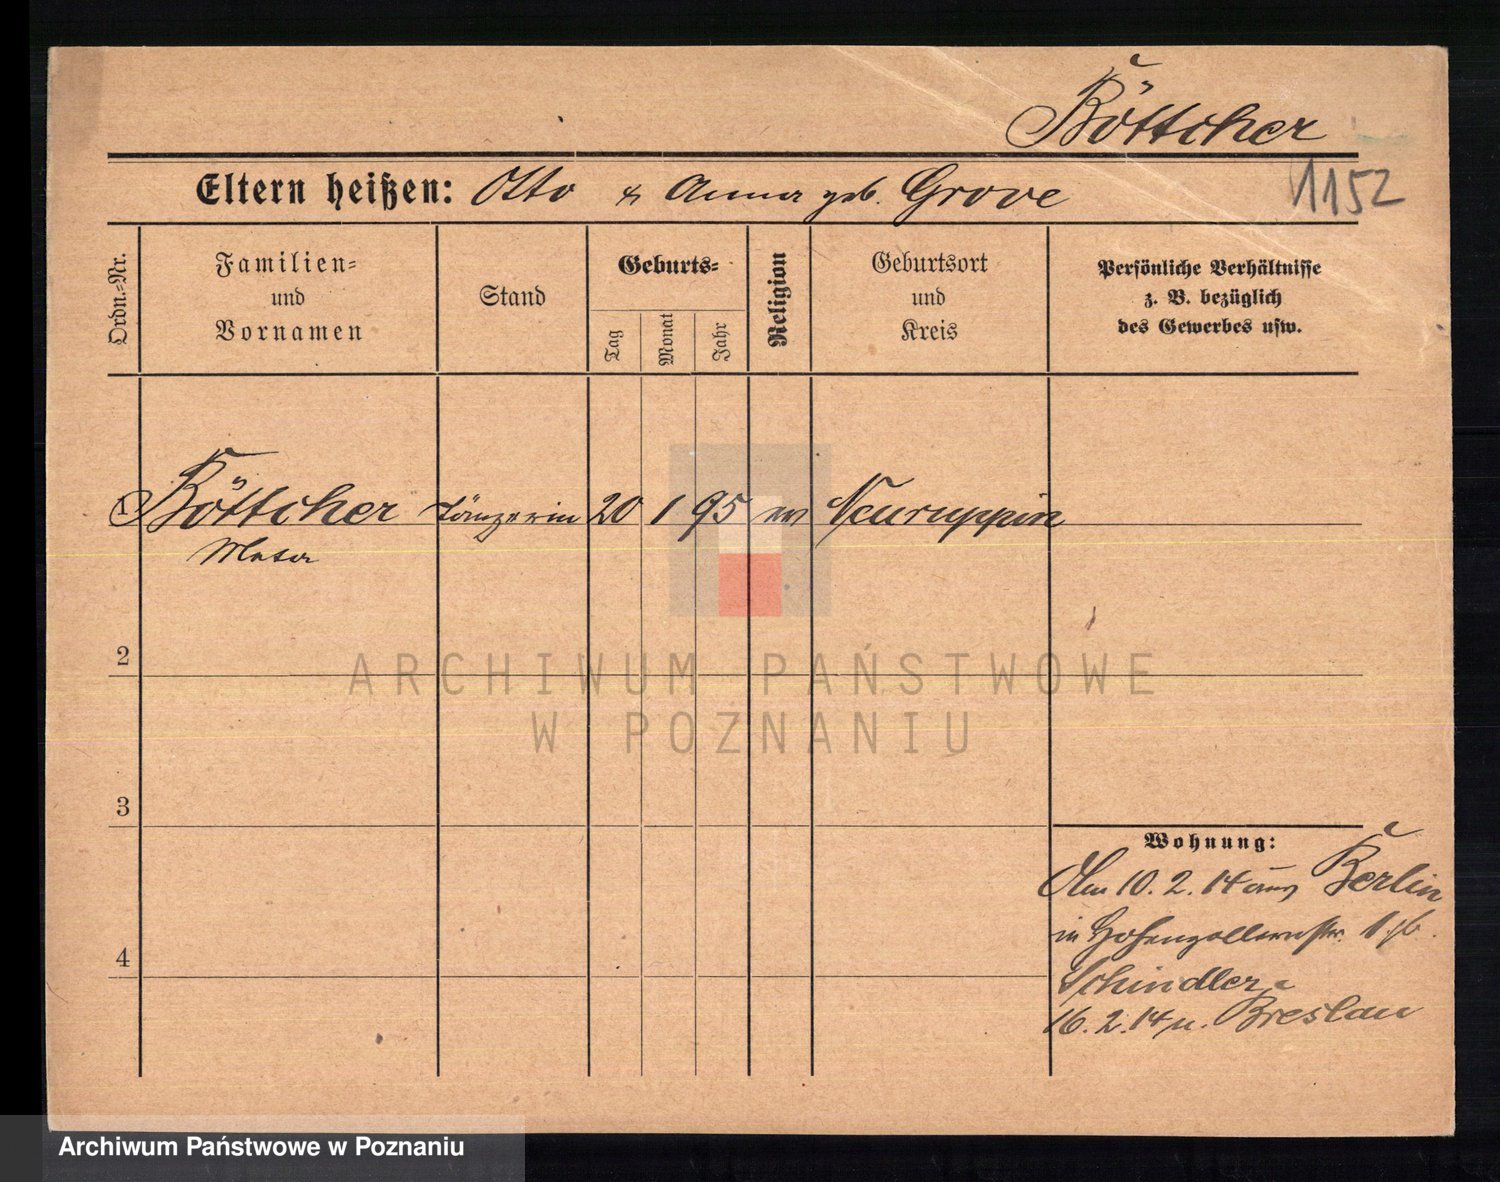 Böttcher
Eltern heißen: Otto & Anna geb. Grove
1152
Ordn.=Nr.
Familien=
und
Vornamen
Stand
Geburts=
Tag
Monat
Jahr
Religion
Geburtsort
und
Kreis
Persönliche Verhältnisse
z. B. bezüglich
des Gewerbes usw.
1 Böttcher Tänzerin 20 1 95 ev Neuruppin
2
ARCHIWUM PAŃSTWOWE
W POZNANIU
3
Wohnung:
Am 10. 2. 14 aus Berlin
in Hohenzollernstr. 1 b.
4
Schindler
16. 2. 14 n. Breslau
Archiwum Państwowe w Poznaniu